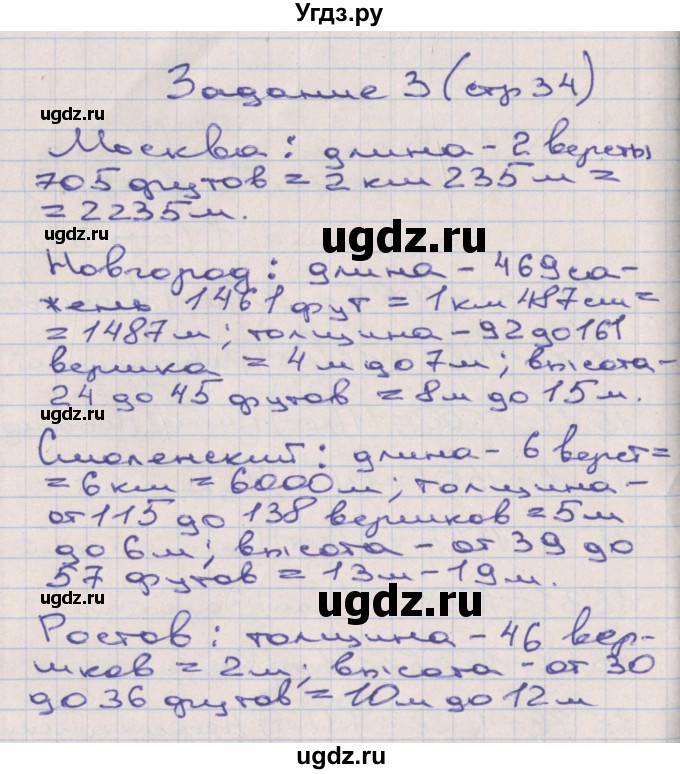 Угдз.ру
Задание 3 (стр 34)
ugdz.ru
Москва: длина - 2 версты
705 футов = 2 км 235 м =
= 2235 м.
ugdz.ru
ugdz.ru
Новгород: длина - 469 са-
жень 1461 фут = 1 км 487 см =
= 1487 м; толщина - 92 до 161
вершка = 4 м до 7 м; высота -
24 до 45 футов = 8 м до 15 м.
ugdz.ru
Смоленский: длина - 6 верст =
= 6 км = 6000 м; толщина -
от 115 до 138 вершков = 5 м
до 6 м; высота - от 39 до
57 футов = 13 м - 19 м.
ugdz.ru
ugdz.ru
Ростов: толщина - 46 вер-
шков = 2 м; высота - от 30
до 36 футов = 10 м до 12 м
ugdz.ru
ugdz.ru